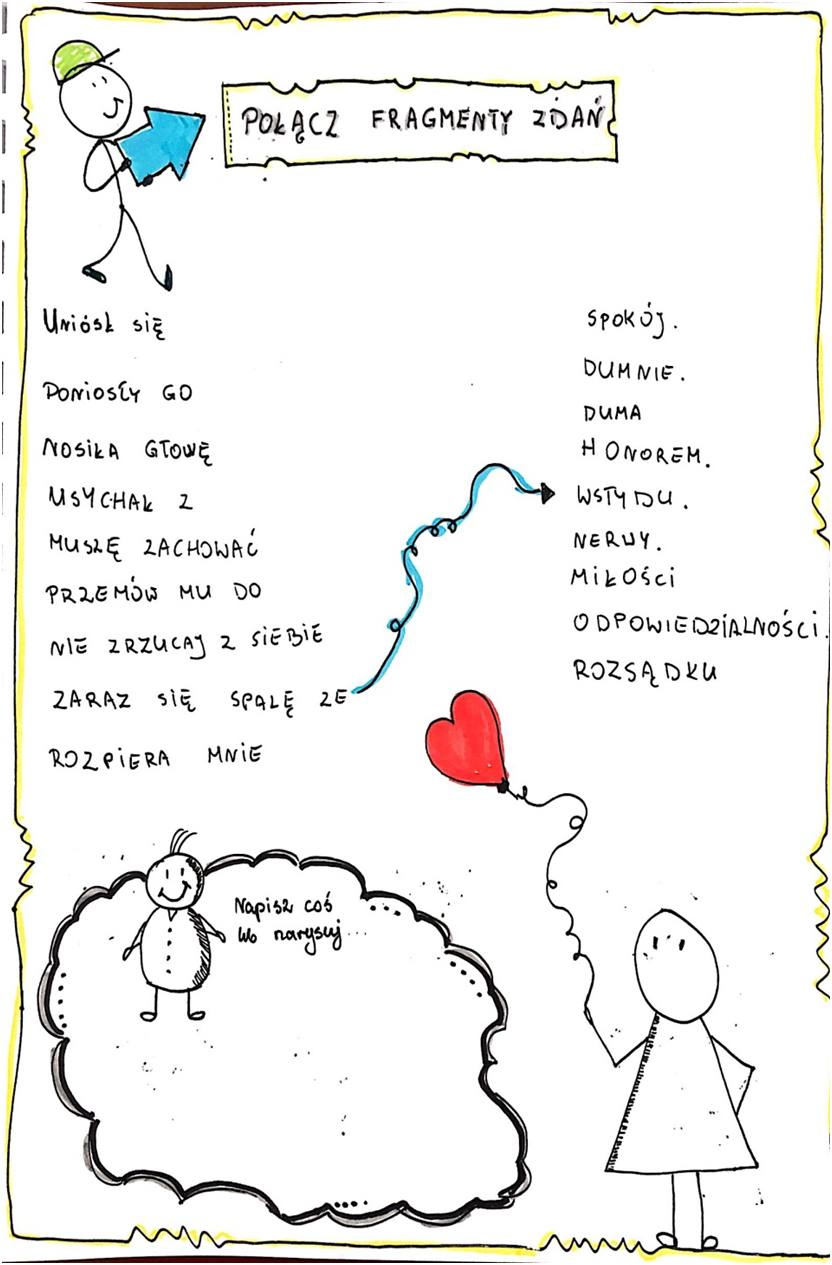 POŁĄCZ FRAGMENTY ZDAŃ
Uniósł się
PONIOSŁY GO
NOSIŁA GŁOWĘ
USYCHAŁ Z
MUSZĘ ZACHOWAĆ
PRZEMÓW MU DO
NIE ZRZUCAJ Z SIEBIE
ZARAZ SIĘ SPALĘ ZE
ROZPIERA MNIE
SPOKÓJ.
DUMNIE.
DUMA
HONOREM.
WSTYDU.
NERWY.
MIŁOŚCI
ODPOWIEDZIALNOŚCI.
ROZSĄDKU
Napisz coś
lub narysuj